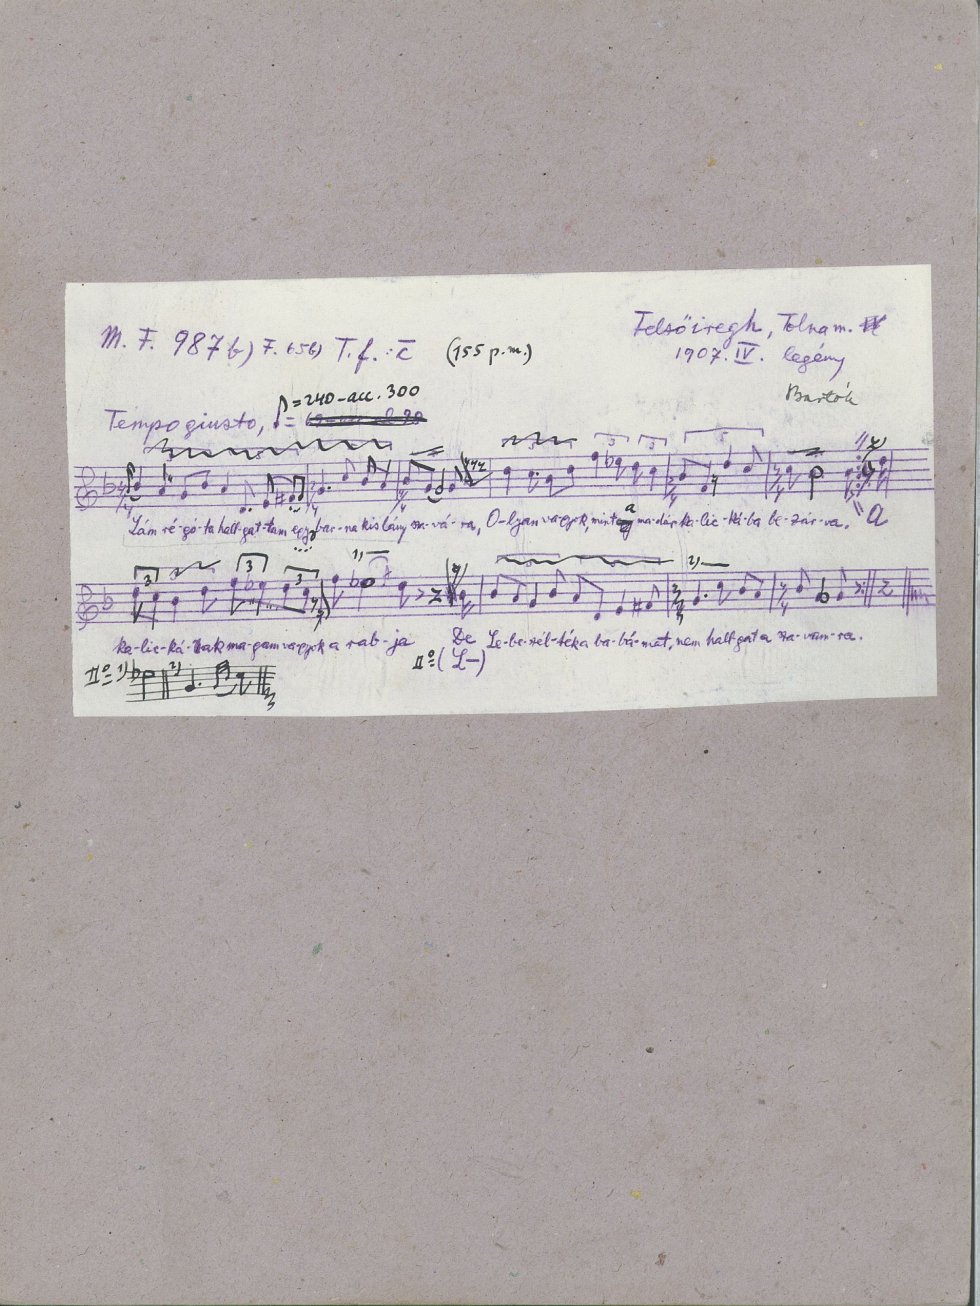 M. F. 987b) F. 656) T.f. : c (155 p.m.)
Felsőiregh, Tolna m.
1907. IV. legény
Bartók
Tempo giusto, ♪ = 240 - acc. 300
Lám ré-gó-ta hall-gat-tam egy bar-na kis lány sza-vá-ra, O-lyan vagyok, mint a ma-dár ka-lic-ká-ba be-zár-va.
a
ka-lic-ká-nak magam vagyok a rab-ja De Le-be-szél-ték a ba-bá-mat, nem hallgat a sza-vam-ra.
IIº = ( L—)
IIº = 1) 2)